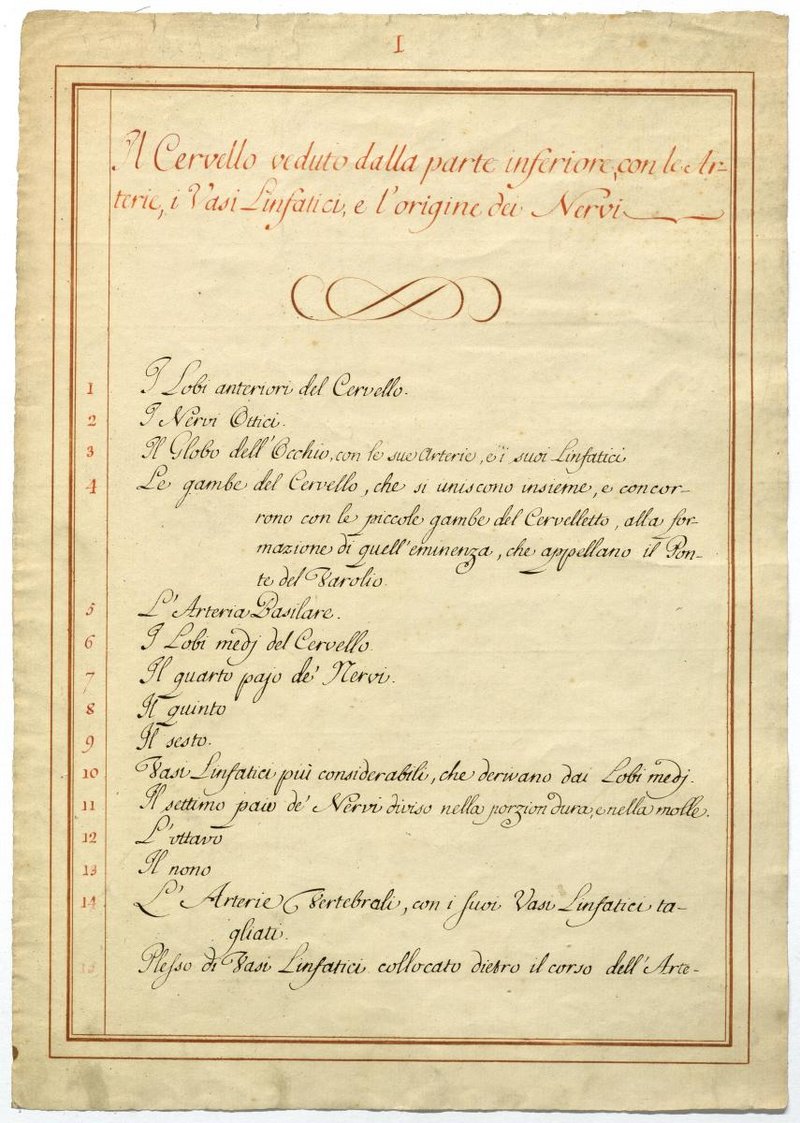 I
Il Cervello veduto dalla parte inferiore, con le Ar-
terie, i Vasi Linfatici, e l'origine dei Nervi
1 I Lobi anteriori del Cervello.
2 I Nervi Ottici.
3 Il Globo dell'Occhio, con le sue Arterie, e i suoi Linfatici
4 Le gambe del Cervello, che si uniscono insieme, e concor-
rono con le piccole gambe del Cervelletto, alla for-
mazione di quell'eminenza, che appellano il Pon-
te del Varolio.
5 L'Arteria Basilare.
6 I Lobi medj del Cervello.
7 Il quarto pajo de' Nervi.
8 Il quinto
9 Il sesto.
10 Vasi Linfatici più considerabili, che derivano dai Lobi medj.
11 Il settimo paio de' Nervi diviso nella porzion dura, e nella molle.
12 L'ottavo
13 Il nono
14 L'Arterie Vertebrali, con i suoi Vasi Linfatici ta-
gliati.
15 Plesso di Vasi Linfatici collocato dietro il corso dell'Arte-